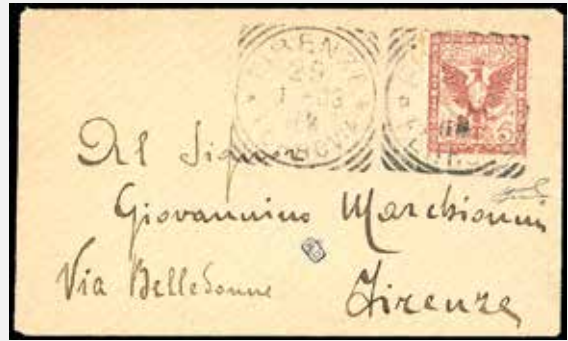 FIRENZE
Al Signor
Giovannino Marchionni
Via Belledonne
Firenze